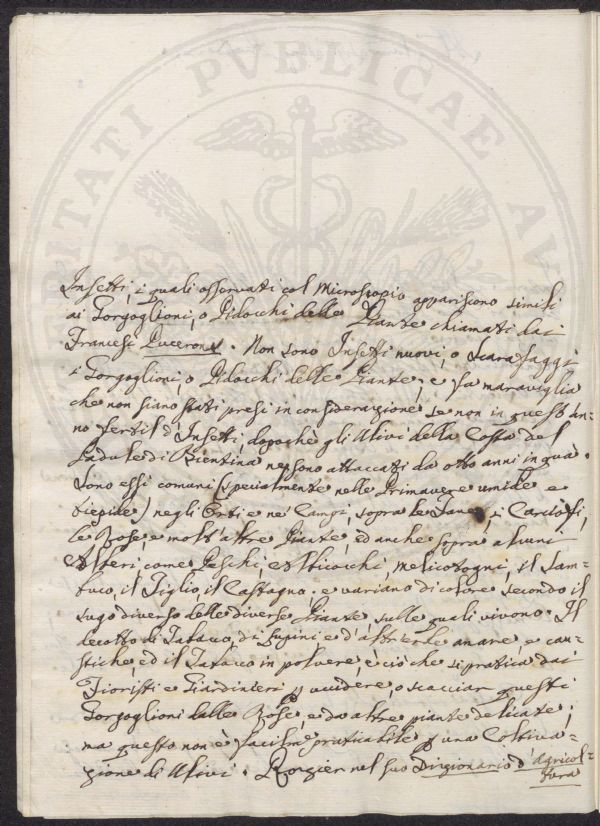 PUBLICAE
Insetti, i quali osservati col Microscopio appariscono simili
ai Gorgoglioni, o Pidocchi delle Piante chiamati dai
Francesi Pucerons. Non sono Insetti nuovi, o Scarafaggi
i Gorgoglioni, o Pidocchi delle Piante; e fa maraviglia
che non siano stati presi in considerazione se non in quest'an-
no fertil d'Insetti, dopochè gli Ulivi della Costa del
Padule di Bientina ne sono attaccati da otto anni in qua.
Sono essi comuni (specialmente nelle Primavere umide e
tiepide) negli Orti e ne' Campi, sopra le Fave, i Carciofi,
le Rose, e molt'altre Piante, ed anche sopra alcuni
Alberi come Peschi, Albicocchi, Melicotogni, il Sam-
buco, il Tiglio, il Castagno: e variano di colore secondo il
sugo diverso delle diverse Piante, sulle quali vivono. Il
decotto di Tabacco, di Lupini e d'altr'erbe amare, e cau-
stiche, ed il Tabacco in polvere, è ciò che si pratica dai
Fioristi e Giardinieri p uccidere, o scacciar questi
Gorgoglioni dalle Rose, e da altre piante delicate;
ma questo non è facilm.e praticabile p una Coltiva-
zione di Ulivi. Rozier nel suo Dizionario d'Agricol-
tura